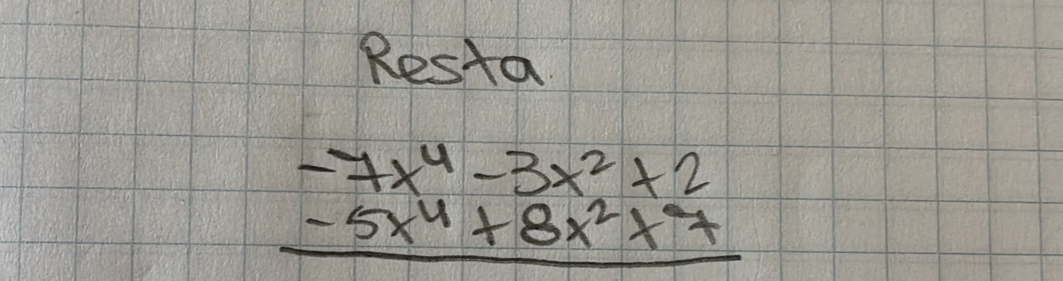 Resta
-7x⁴ -3x² +2
-5x⁴ +8x² +7